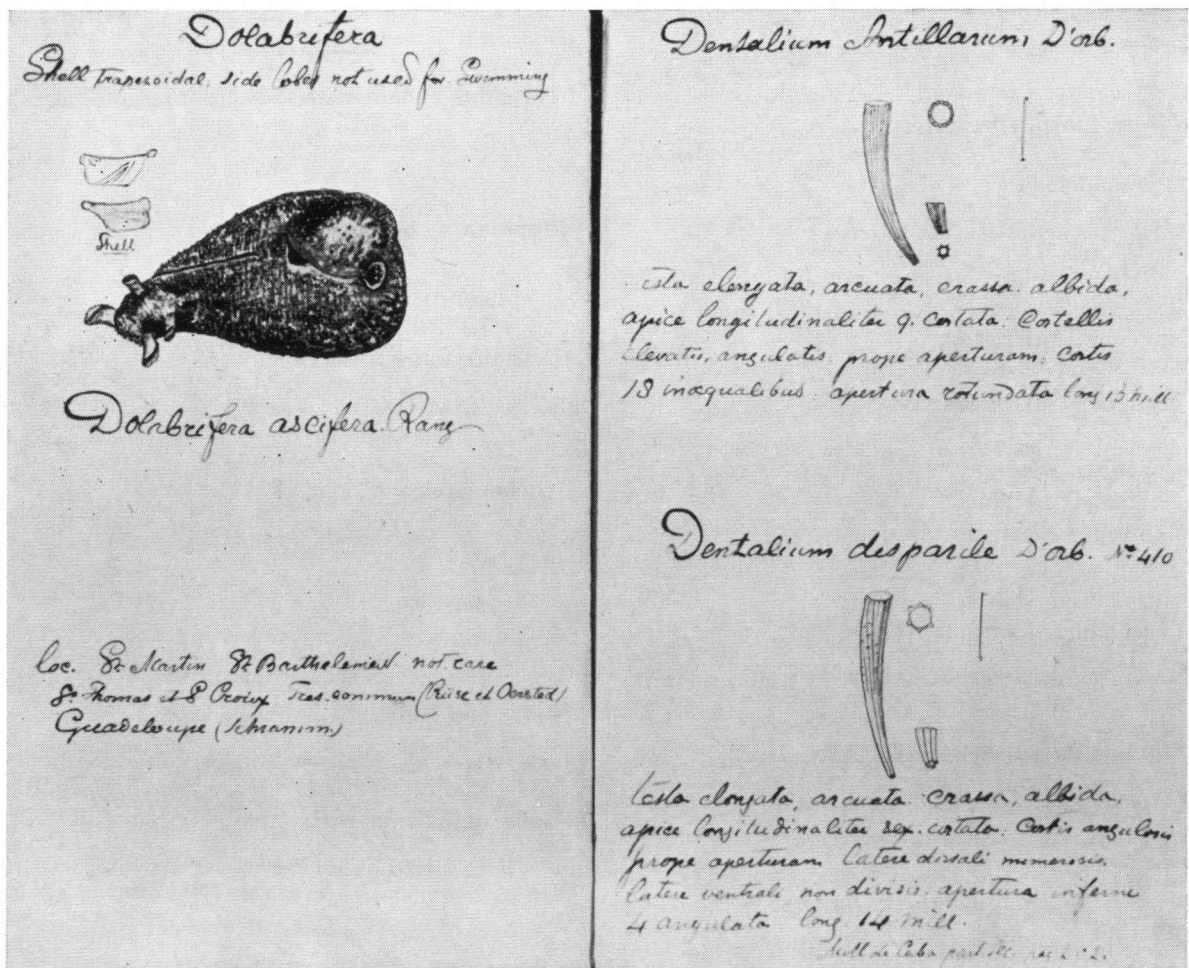 Dolabrifera
Shell trapezoidal, side lobes not used for Swimming
Shell
Dolabrifera ascifera. Rang
loc. St Martin St Barthelemew not rare
St Thomas et St Croix Tres. commun (Riise et Oersted)
Guadeloupe (Schramm)
Dentalium Antillarum D'orb.
testa elongata, arcuata, crassa. albida,
apice longitudinaliter 9. costata. Costellis
elevatis, angulatis. prope aperturam. Costis
13 inæqualibus. apertura rotundata long 13 mill
Dentalium desparile D'orb. No 410
testa elongata, arcuata. crassa, albida,
apice longitudinaliter sex. costata. Costis angulosis
prope aperturam latere dorsali numerosis.
latere ventrali, non divisis. apertura inferne
4 angulata long. 14 mill.
Moll de Cuba